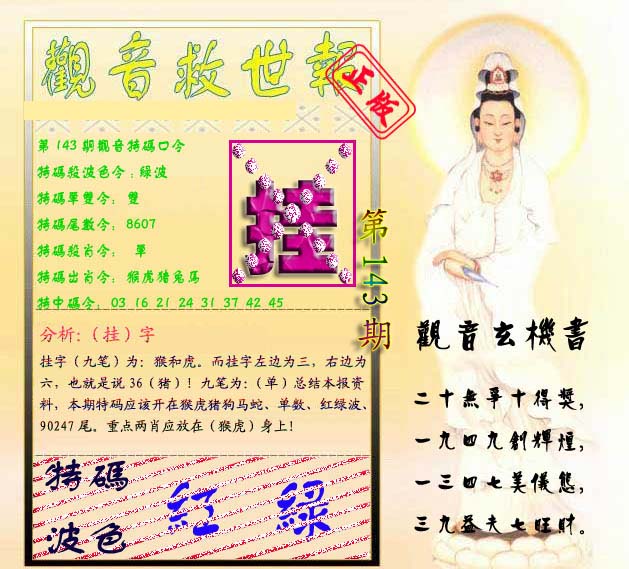 觀音救世報
正版
第143期觀音特碼口令
特碼殺波色令：綠波
特碼單雙令： 雙
特碼尾數令： 8607
特碼殺肖令： 單
特碼出肖令： 猴虎猪兔馬
特中碼令： 03 16 21 24 31 37 42 45
挂
第143期
分析:（挂）字
挂字（九笔）为：猴和虎。而挂字左边为三，右边为
六，也就是说 36（猪）！九笔为：（单）总结本报资
料，本期特码应该开在猴虎猪狗马蛇、单数、红绿波、
90247 尾。重点两肖应放在（猴虎）身上！
特碼
波色
紅 綠
觀音玄機書
二十無爭十得獎，
一九四九創輝煌，
一三四七美儀態，
三九益夫七旺財。